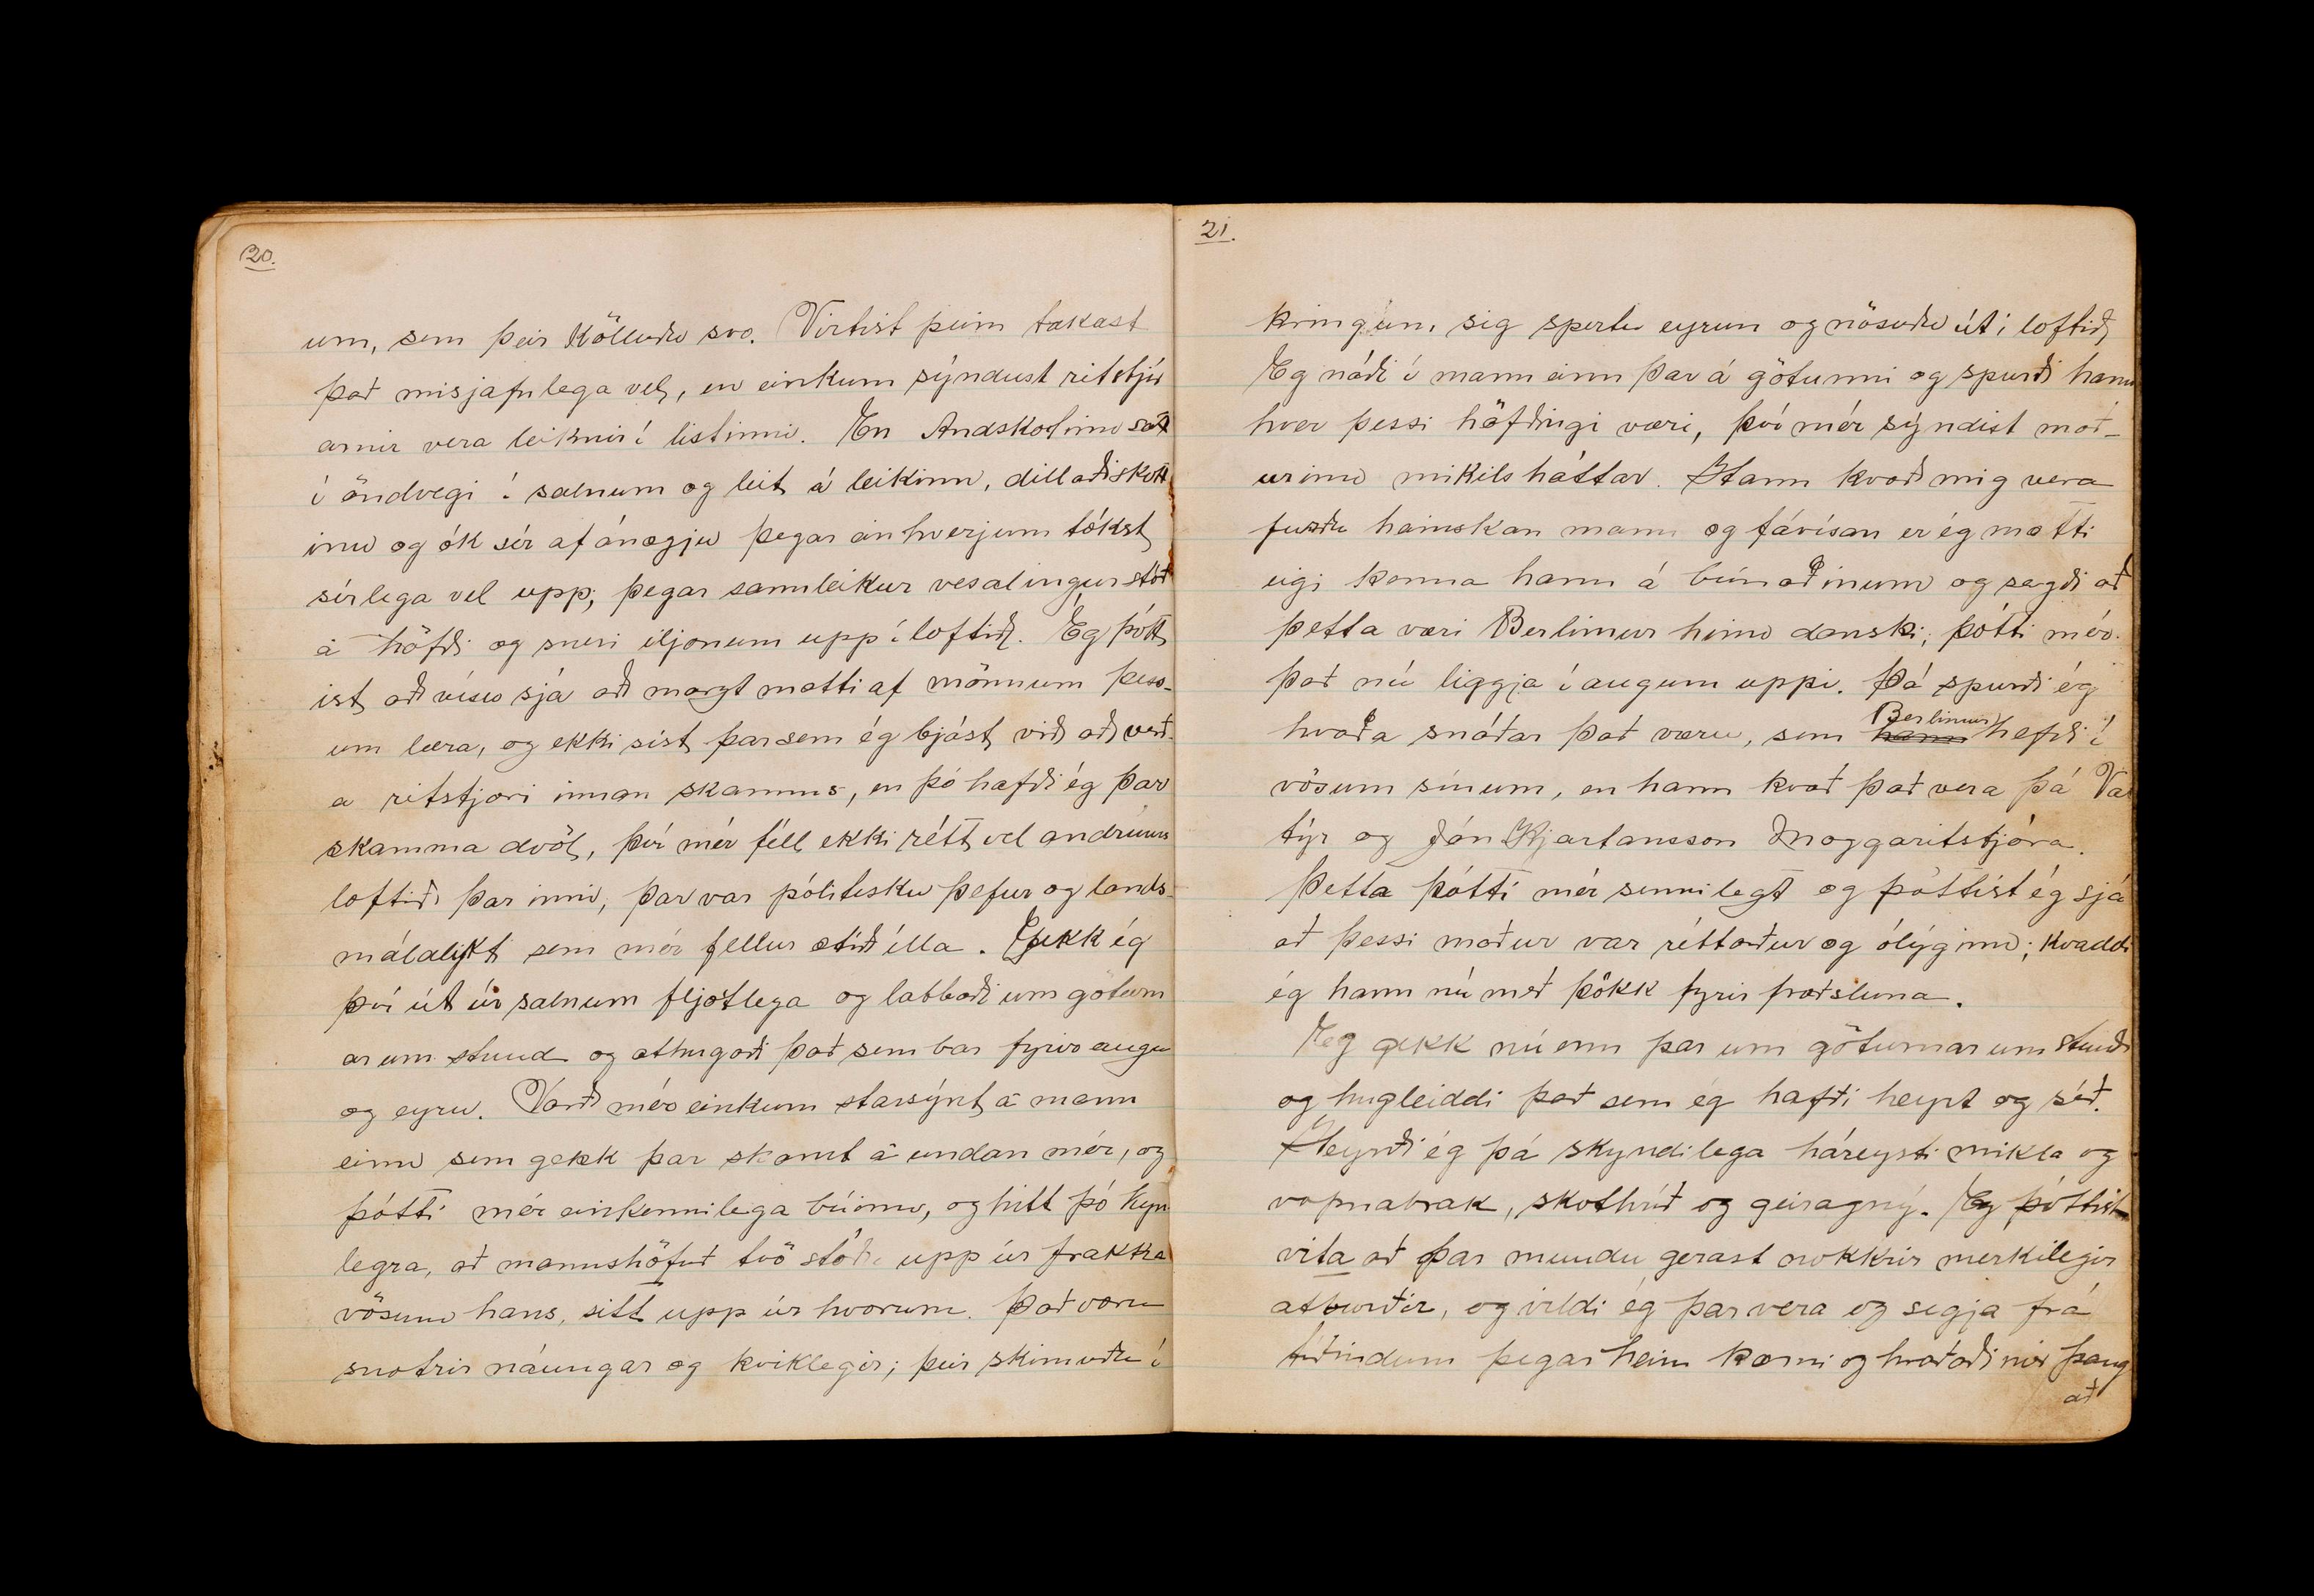 20.
um, sem þeir kölluðu svo. Virtist þeim takast
það misjafnlega vel, en einkum sýndust ritstjór
arnir vera leiknir í listinni. En Andskotinn sat
í öndvegi í salnum og leit á leikinn, dillaði skott
inu og ók sér af ánægju þegar einhverjum tókst
sérlega vel upp, þegar sannleikur vesalingur stóð
á höfði og sneri iljonum upp í loftið. Ég þótt
ist að vísu sjá að margt mætti af mönnum þess-
um læra, og ekki síst þar sem ég bjóst við að verð-
a ritstjori innan skamms, en þó hafði ég þar
skamma dvöl, því mér féll ekki rétt vel andrúms
loftið þar inni, þar var pólitísku þefur og lands-
málalykt sem mér fellur ætíð illa. Gekk ég
því út úr salnum fljótlega og labbaði um göturn
ar um stund og athugaði það sem bar fyrir augu
og eyru. Varð mér einkum starsýnt á mann
einn sem gekk þar skamt á undan mér, og
þótti mér einkennilega búinn, og hitt þó kyn
legra, að mannshöfuð tvö stóðu upp úr frakka
vösum hans, sitt upp úr hvorum. Það voru
snotrir náungar og kviklegir; þeir skimuðu í
21.
kringum sig spertu eyrun og nösuðu út í loftið
Eg náði í mann einn þar á götunni og spurði hann
hver þessi höfðingi væri, því mér sýndist mað-
urinn mikilsháttar. Hann kvað mig vera
furðu heimskan mann og fávísan er ég mætti
eigi kenna hann á búnaðinum og sagði að
þetta væri Berlimur hinn danski; þótti mér
það nú liggja í augum uppi. Þá spurði ég
hvaða snáðar það væru, sem hann Berlimur hefði í
vösum sínum, en hann kvað það vera þá Val
týr og Jón Kjartansson Moggaritstjóra.
Þetta þótti mér sennilegt og þóttist ég sjá
að þessi maður var réttorður og ólýginn; kvaddi
ég hann nú með þökk fyrir fræðsluna.
Eg gekk nú enn þar um göturnar um stund
og hugleiddi það sem ég hafði heyrt og séð.
Heyrði ég þá skyndilega háreysti mikla og
vopnabrak, skothríð og geiragný. Eg þóttist
vita að þar mundu gerast nokkrir merkilegir
atburðir, og vildi ég þar vera og segja frá
tíðindum þegar heim kæmi og hraðaði mér þang
að